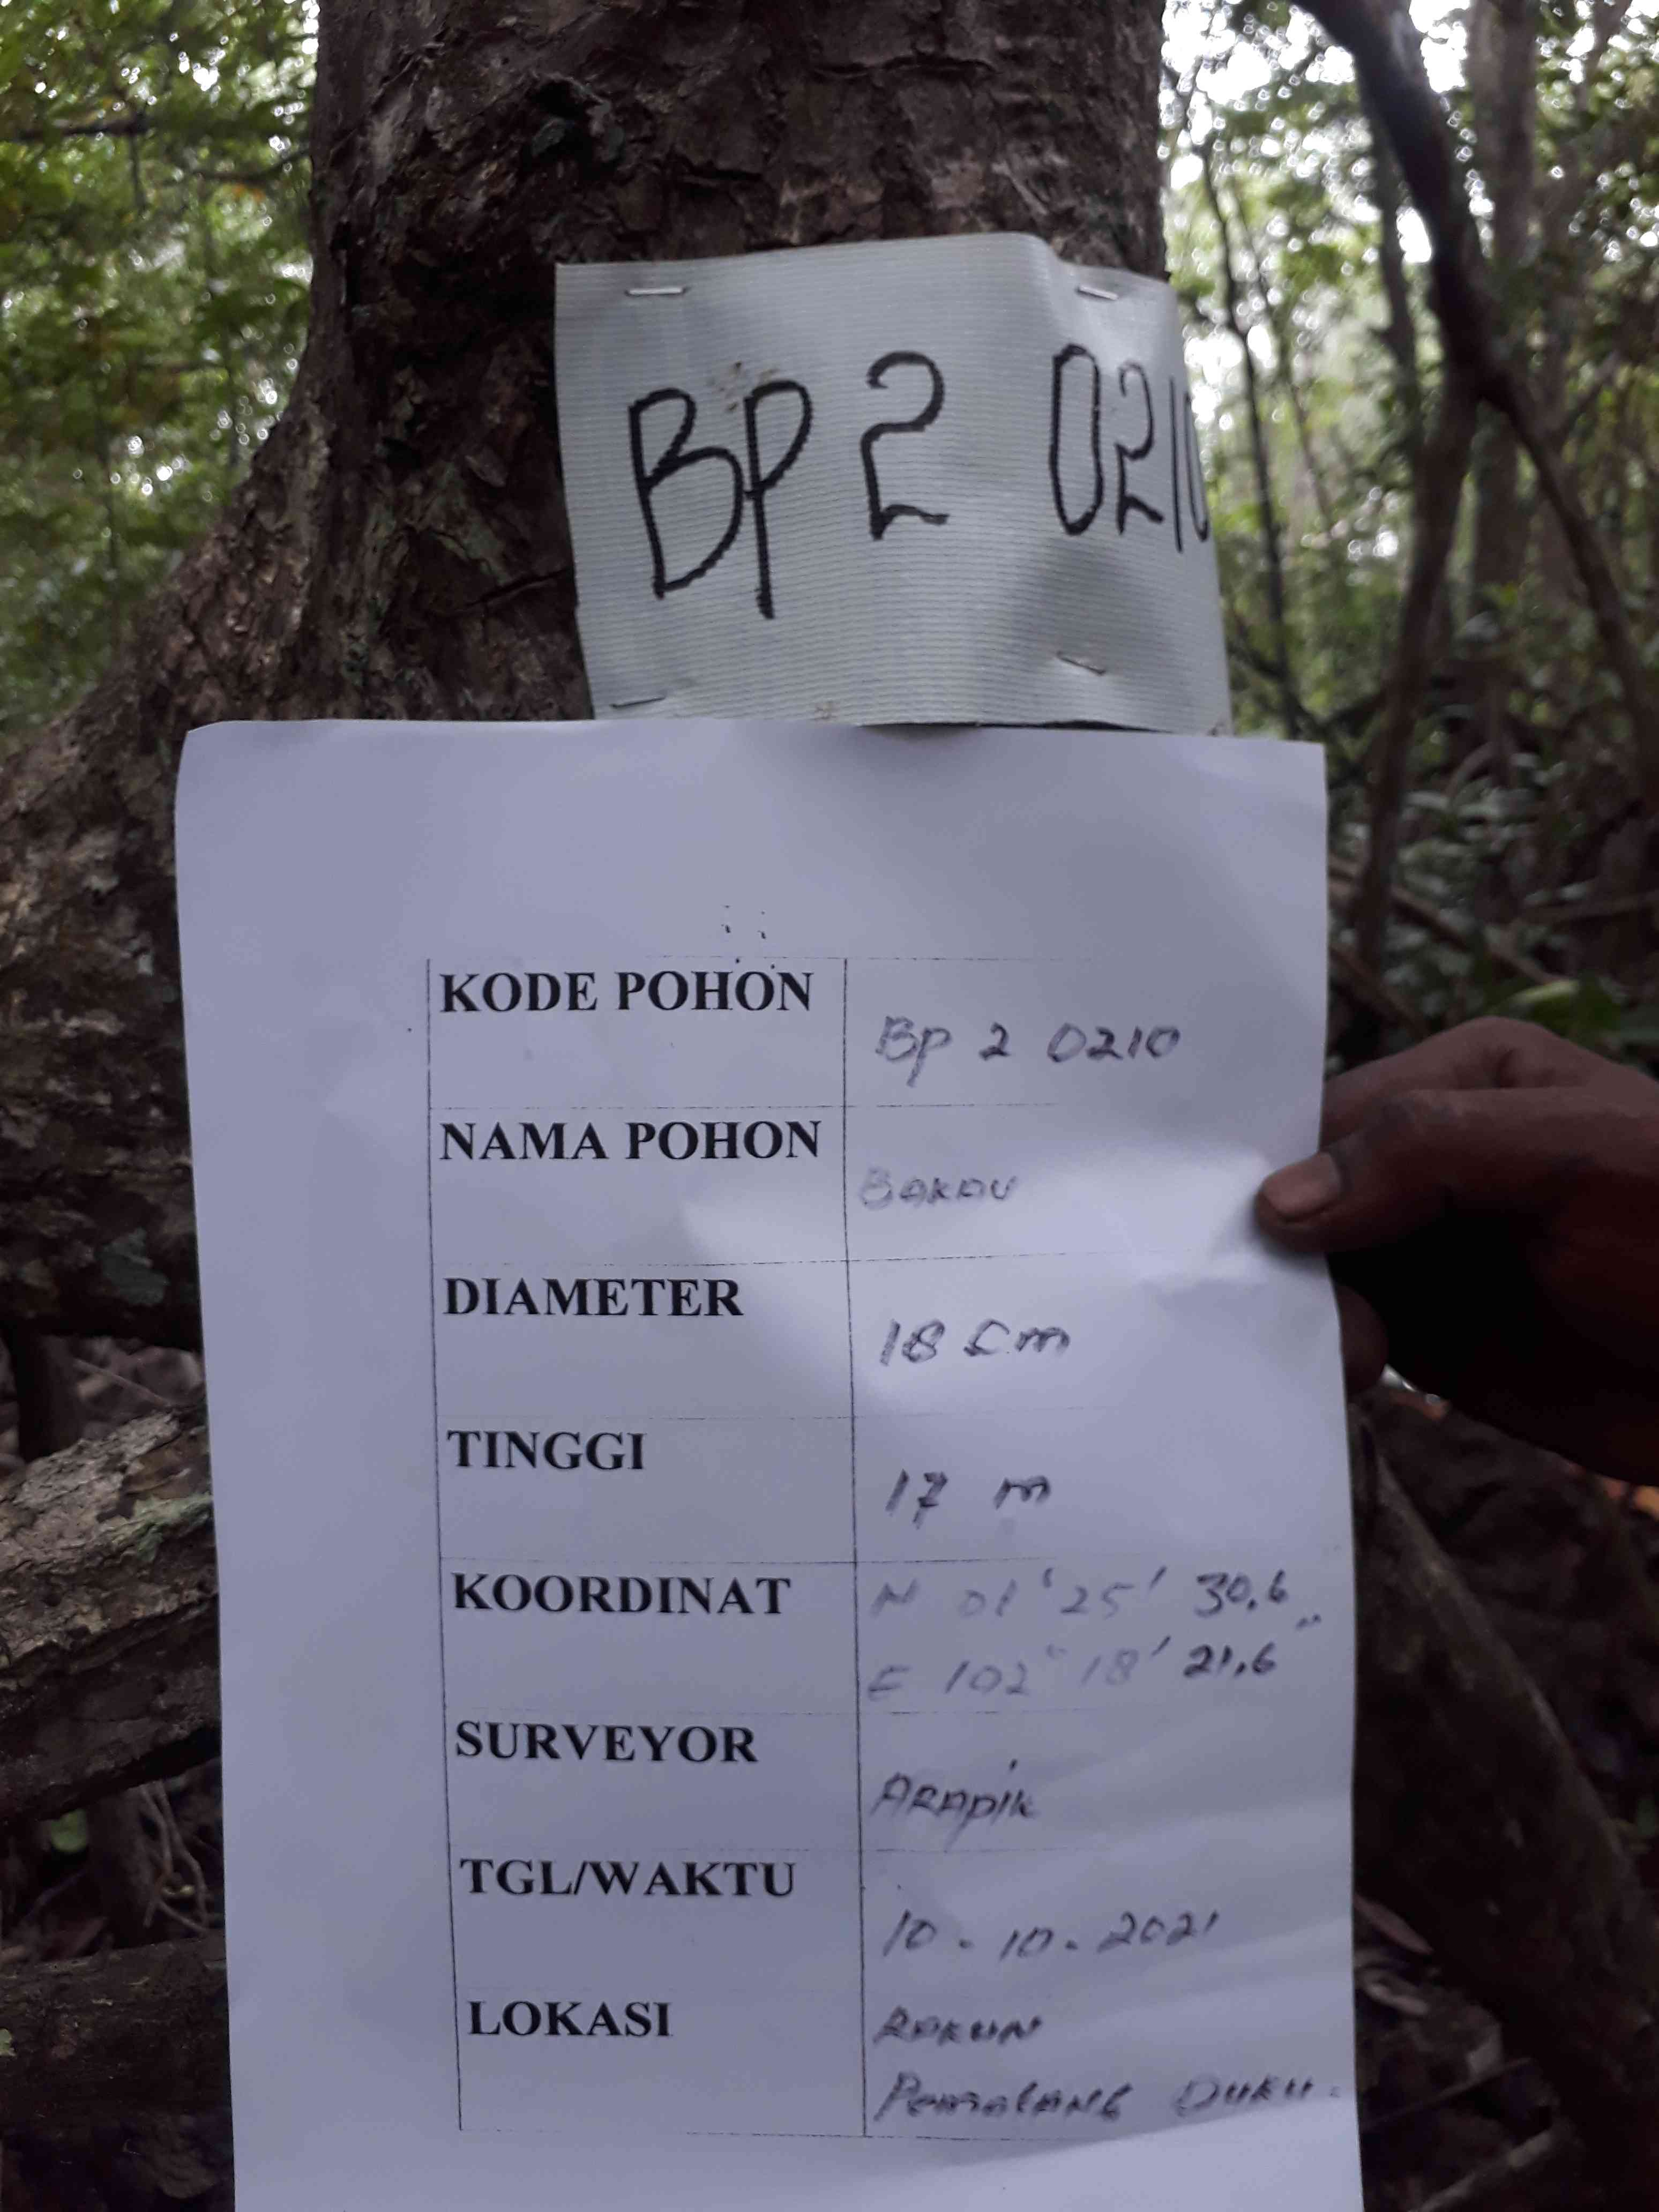 BP 2 0210
KODE POHON
BP 2 0210
NAMA POHON
BAKAU
DIAMETER
18 cm
TINGGI
17 m
KOORDINAT
N 01 ' 25 ' 30,6 "
E 102 " 18 ' 21,6
SURVEYOR
ARAPIK
TGL/WAKTU
10 - 10 - 2021
LOKASI
DUKU